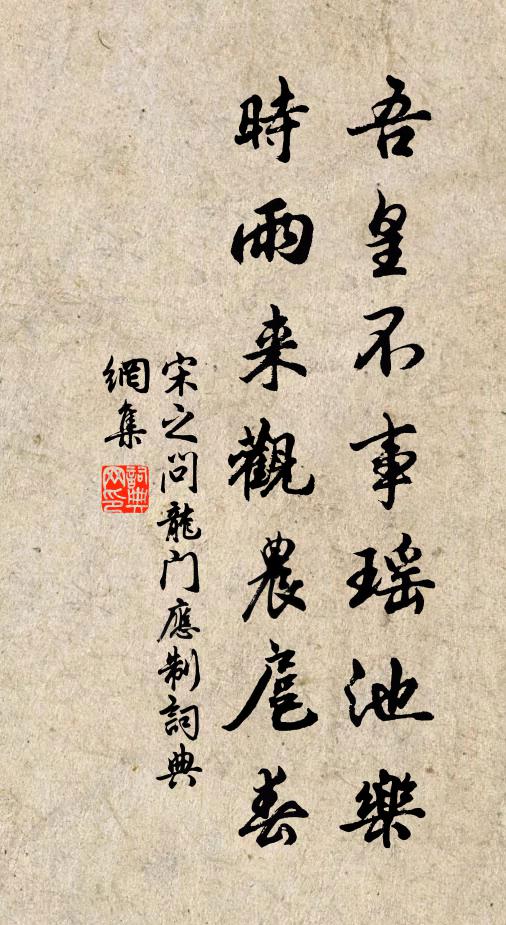 吾皇不事瑶池樂
時雨来觀農扈春
宋之问龍门應制詞典
網集
詞典网印